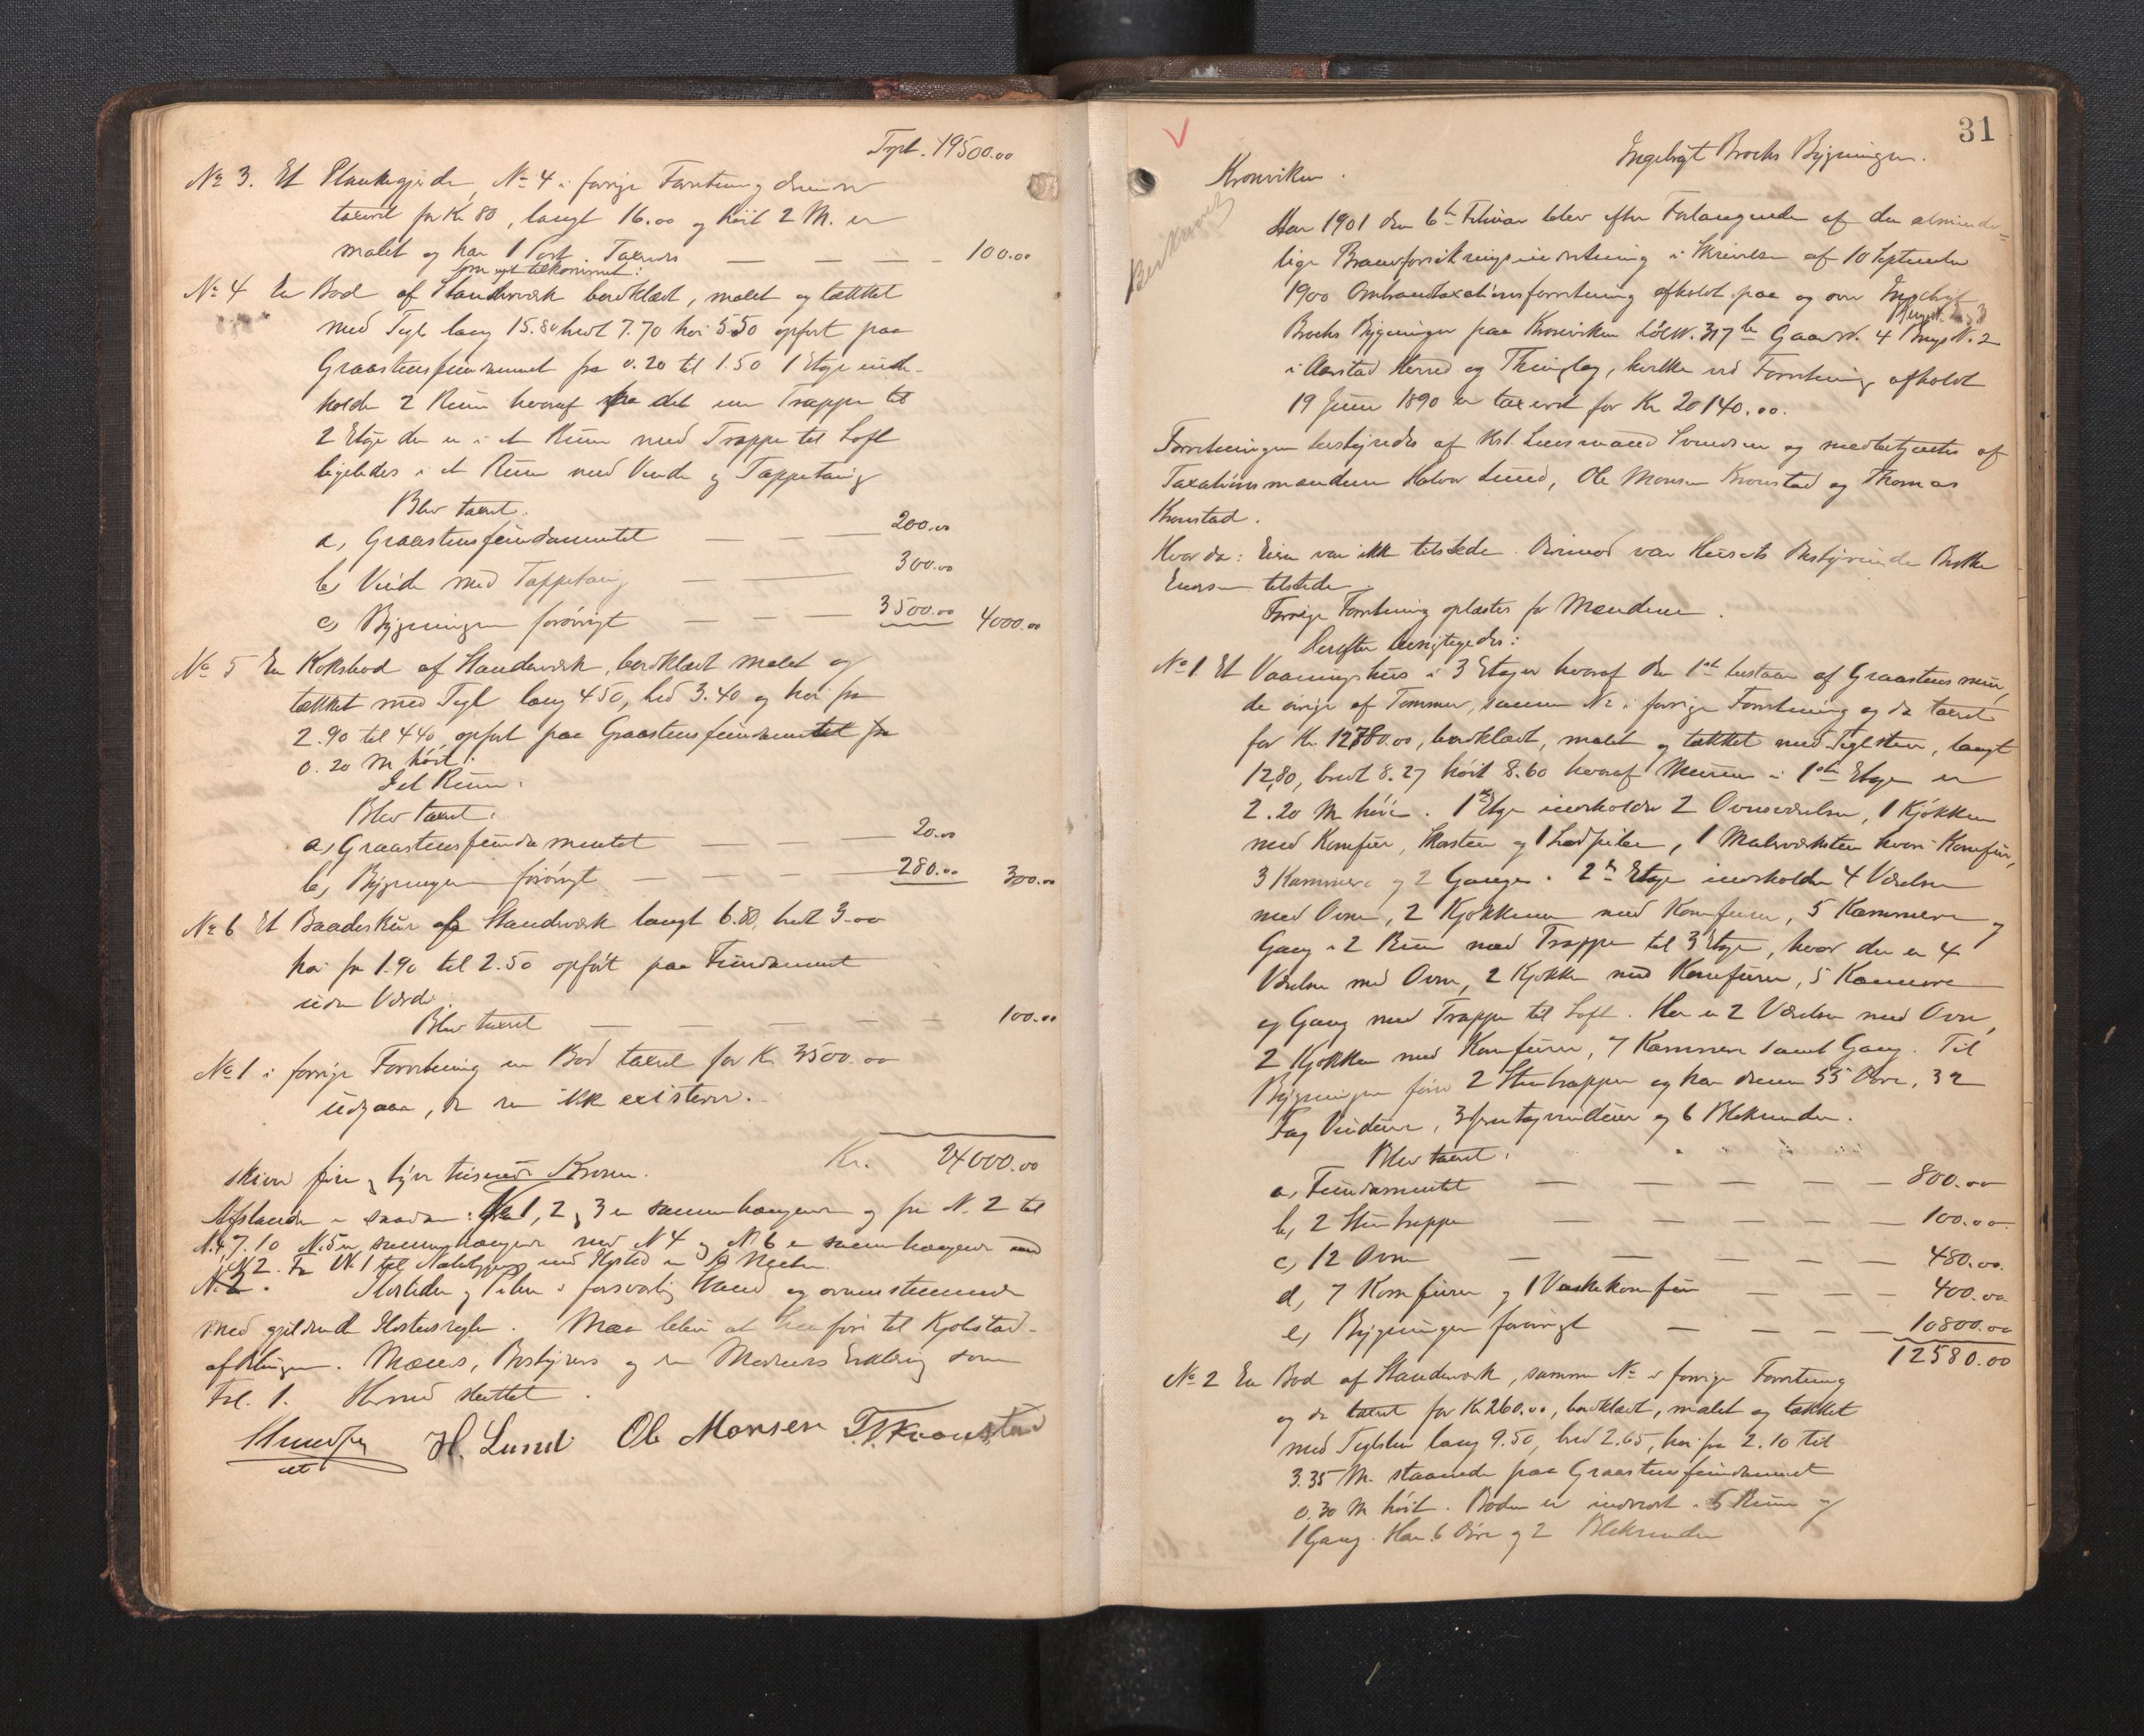 Trpt. 19500.00
No 3. Et Plankegjerde, No 4 i forrige Forretning
taxeret for Kr 80, langt 16.00 og høit 2 M. er
malet og har 1 Port. Taxeres — — — — 100.00
som nyt tilkommet:
No 4 En Bod af Standerværk bordklædt, malet og tækket
med Tegl lang 15.80 bred 7.70 høi 5.50 opført paa
Graastensfundament fra 0.20 til 1.50 1 Etage inde-
holder 2 Rum hvoraf fra det ene Trappe til
2 Etage der er i et Rum med Trappe til Loft
ligeledes i et Rum med Vinde og Tappetaug
Blev taxeret.
a, Graastensfundamentet — — — 200.00
b, Vinde med Tappetaug — — 300.00
c, Bygningen forøvrigt — — — 3500.00 4000.00
No 5 En Koksbod af Standerværk, bordklædt malet og
tækket med Tegl lang 4.50, bred 3.40 og høi fra
2.90 til 4.40 opført paa Graastensfundamentet fra
0.20 M høit.
Et Rum.
Blev taxeret:
a, Graastensfundamentet — — — 20.00
b, Bygningen forøvrigt — — — — 280.00 300.00
No 6 Et Baadeskur af Standerværk langt 6.80, bredt 3.00
høi fra 1.90 til 2.50 opført paa Fundament
uden Værdi.
Blev taxeret — — — — 100.00
No 1 i forrige Forretning en Bod taxeret for Kr 3500.00
udgaar, da den ikke existerer.
Kr. 24000.00
skriver fire og tyve tusend Kroner.
Afstanden er saadan: No 1, 2 og 3 er sammenhængende og fra N. 2 til
N. 4 7.10 N. 5 er sammenhængende med N 4 og N. 6 er sammenhængende med
N 2. Fra N. 1 til Nabobygning med Ildsted er 10 Meter.
N. 2. Ildsteder og Piber i forsvarlig Stand og overensstemmende
med gjeldende Ildstedsregler. Maa blive at henføre til Kjøbstad-
afdelingen. Mænds, Bestyrers og Erklæring som
Fol. 1. Hermed sluttet.
Svendsen H. Lund Ole Monsen T. T. Kronstad
cst
31
Kronviken. Engebrigt Brochs Bygninger.
Beskrevet
Aar 1901 den 6te Februar blev efter Forlangende af den alminde-
lige Brandforsikringsindretning i Skrivelse af 10 September
1900 Ombrandtaxationsforretning afholdt paa og over Engebrigt
Brochs Bygninger paa Kronviken LøbN. 317 b Gaards N. 4 Brugs N. 2
i Aarstad Herred og Thinglag, hvilke ved Forretning afholdt
19 Juni 1890 er taxeret for Kr 20140.00.
Forretningen bestyredes af Kst. Lensmand Svendsen og medbetjentes af
Taxationsmændene Halvor Lund, Ole Monsen Kronstad og Thomas
Kronstad.
Hvor da: Eieren var ikke tilstede. Derimod var Husets Bestyrerinde
tilstede.
Forrige Forretning oplæstes for Mændene.
Derefter besigtigedes:
No 1 Et Vaaningshus i 3 Etager hvoraf den 1ste bestaar af Graastensmur,
de øvrige af Tømmer, samme No i forrige Forretning og da taxeret
for Kr. 12780.00, bordklædt, malet og tækket med Teglsten, langt
12,80, bredt 8.27 høit 8.60 hvoraf Muren i 1ste Etage er
2.20 M høi. 1ste Etage indeholder 2 Ovnsværelser, 1 Kjøkken
med Komfur, Skorsten og 1 Ladpibe, 1 Malerværksted hvori Komfur,
3 Kammere og 2 Gange. 2den Etage indeholder 4 Værelser
med Ovne, 2 Kjøkkener med Komfurer, 5 Kammere og
Gang i 2 Rum med Trappe til 3 Etage, hvor der er 4
Værelser med Ovne, 2 Kjøkken med Komfurer, 5 Kammere
og Gang med Trappe til Loft. Her er 2 Værelser med Ovne,
2 Kjøkken med Komfurer, 7 Kammere samt Gang. Til
Bygningen fører 2 Stentrapper og har denne 55 Døre, 32
Fag Vinduer, 3 vinduer og 6 Blikrender.
Blev taxeret:
a, Fundamentet — — — — — 800.00
b, 2 Stentrapper — — — — — 100.00
c, 12 Ovne — — — — — 480.00
d, 7 Komfurer og 1 Vaskekomfur — — — 400.00
e, Bygningen forøvrigt — — — — 10800.00
12580.00
No 2 En Bod af Standerværk, samme No i forrige Forretning
og da taxeret for Kr 260.00, bordklædt, malet og tækket
med Teglsten lang 9.50, bred 2.65, høi fra 2.10 til
3.35 M. staaende paa Graastensfundament
0.30 M høit. Boden er inddelt i 5 Rum og
1 Gang. Har 6 Døre og 2 Blikrender